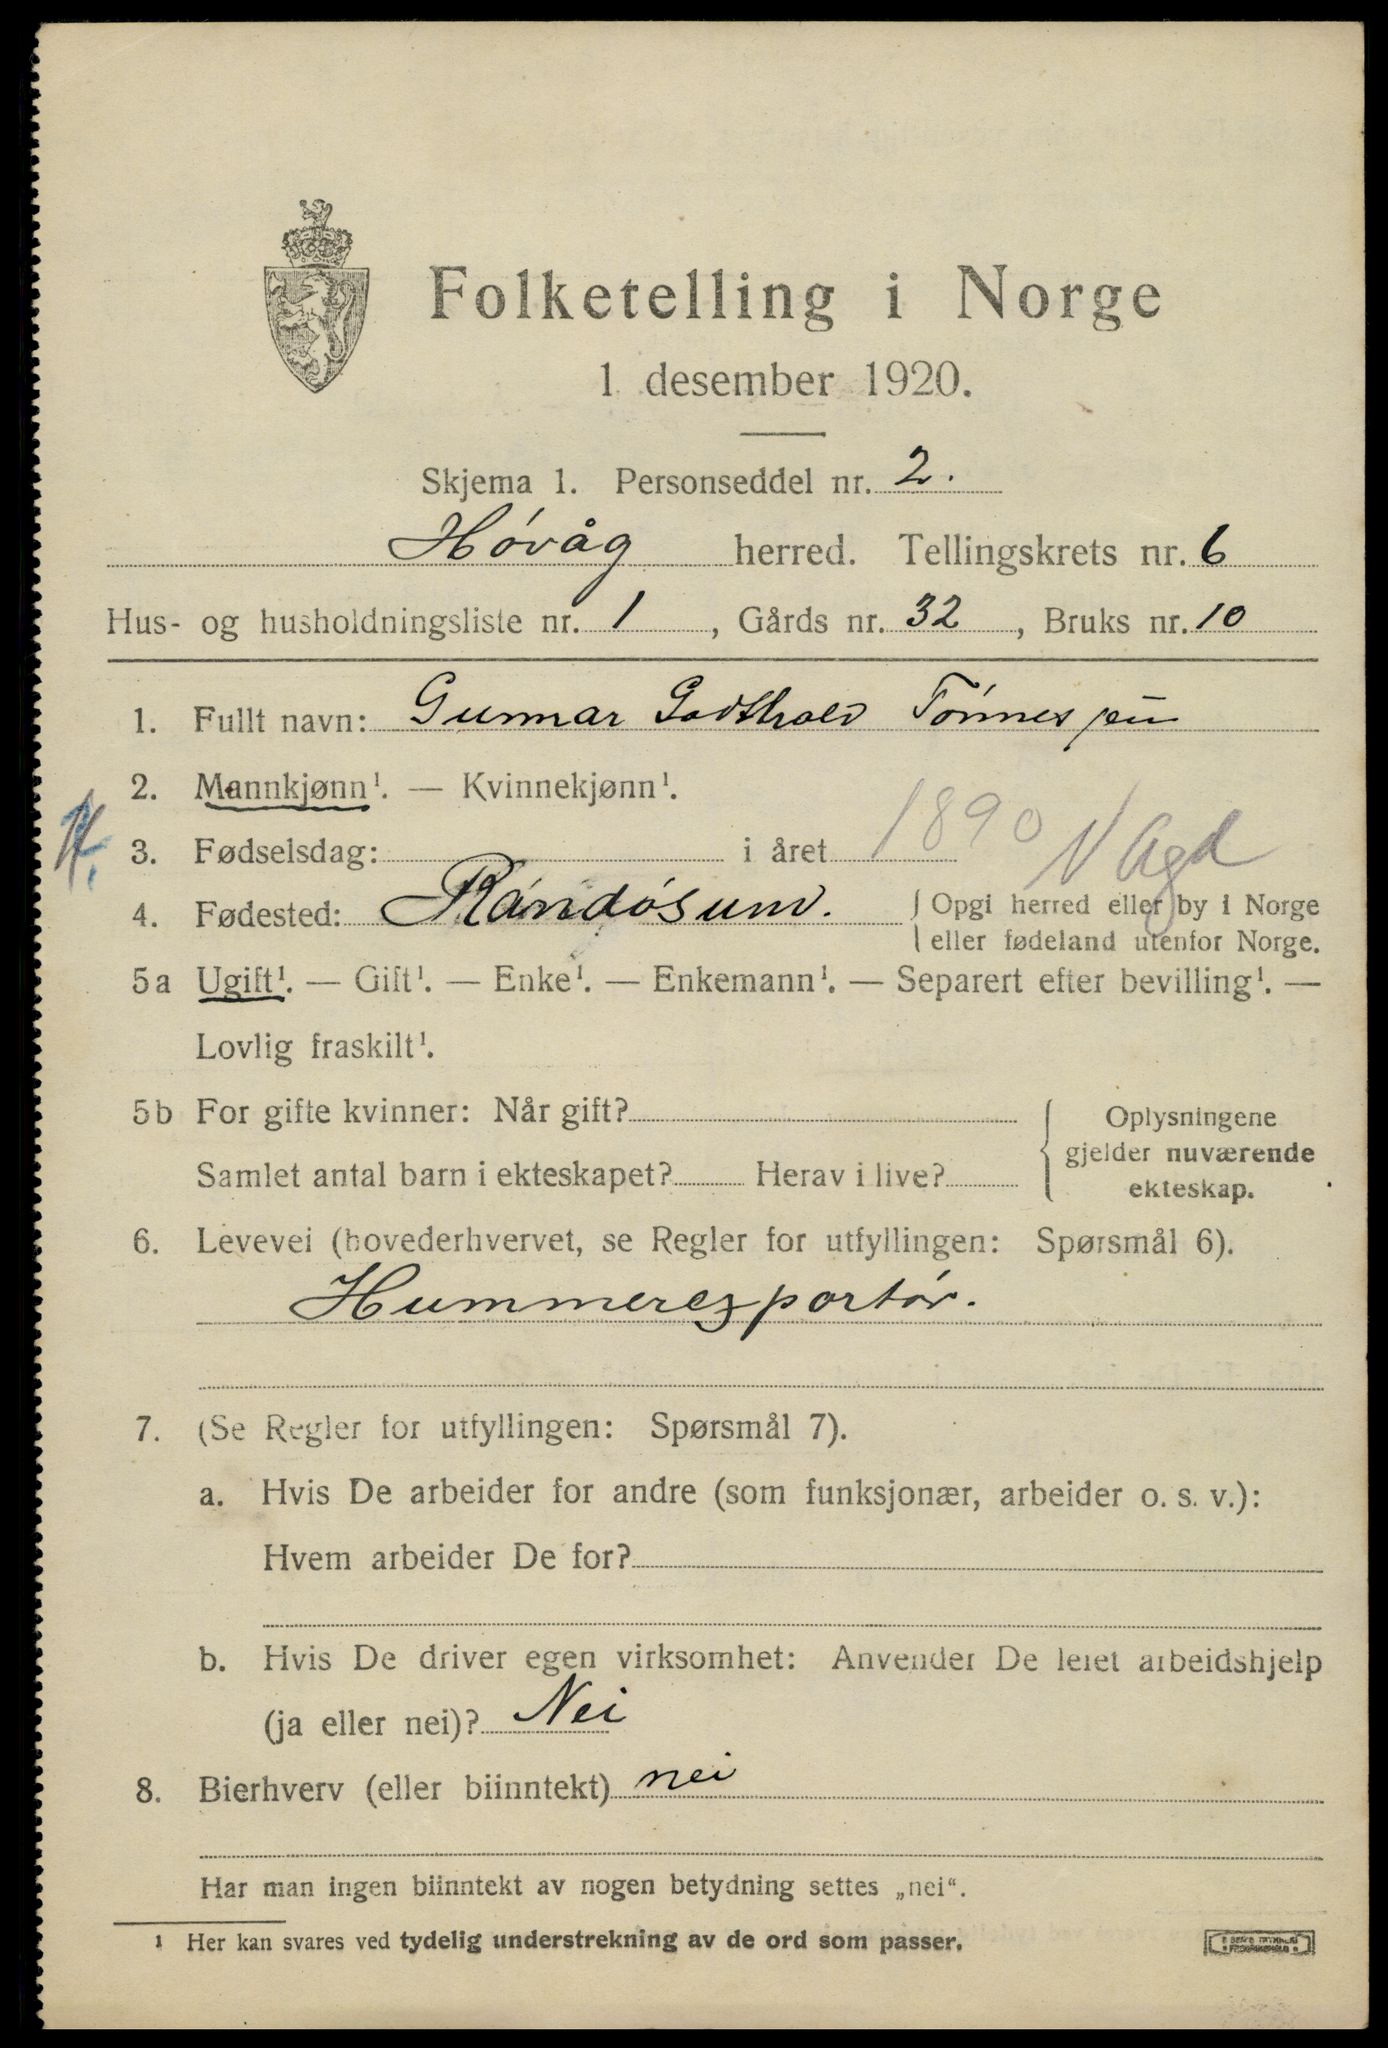 Folketelling i Norge
1 desember 1920.
Skjema 1. Personseddel nr. 2.
Høvåg herred. Tellingskrets nr. 6
Hus- og husholdningsliste nr. 1, Gårds nr. 32, Bruks nr. 10
1. Fullt navn: Gunnar Godthold Tónnesen
2. Mannkjønn¹. — Kvinnekjønn¹.
3. Fødselsdag: i året 1890 V Agd
4. Fødested: Randósund. Opgi herred eller by i Norge
eller fødeland utenfor Norge.
5a Ugift¹. — Gift¹. — Enke¹. — Enkemann¹. — Separert efter bevilling¹. —
Lovlig fraskilt¹.
5b For gifte kvinner: Når gift?
Samlet antal barn i ekteskapet? Herav i live?
Oplysningene
gjelder nuværende
ekteskap.
6. Levevei (hovederhvervet, se Regler for utfyllingen: Spørsmål 6).
Hummerexportór.
7. (Se Regler for utfyllingen: Spørsmål 7).
a. Hvis De arbeider for andre (som funksjonær, arbeider o. s. v.):
Hvem arbeider De for?
b. Hvis De driver egen virksomhet: Anvender De leiet arbeidshjelp
(ja eller nei)? Nei
8. Bierhverv (eller biinntekt) nei
Har man ingen biinntekt av nogen betydning settes „nei“.
¹ Her kan svares ved tydelig understrekning av de ord som passer.